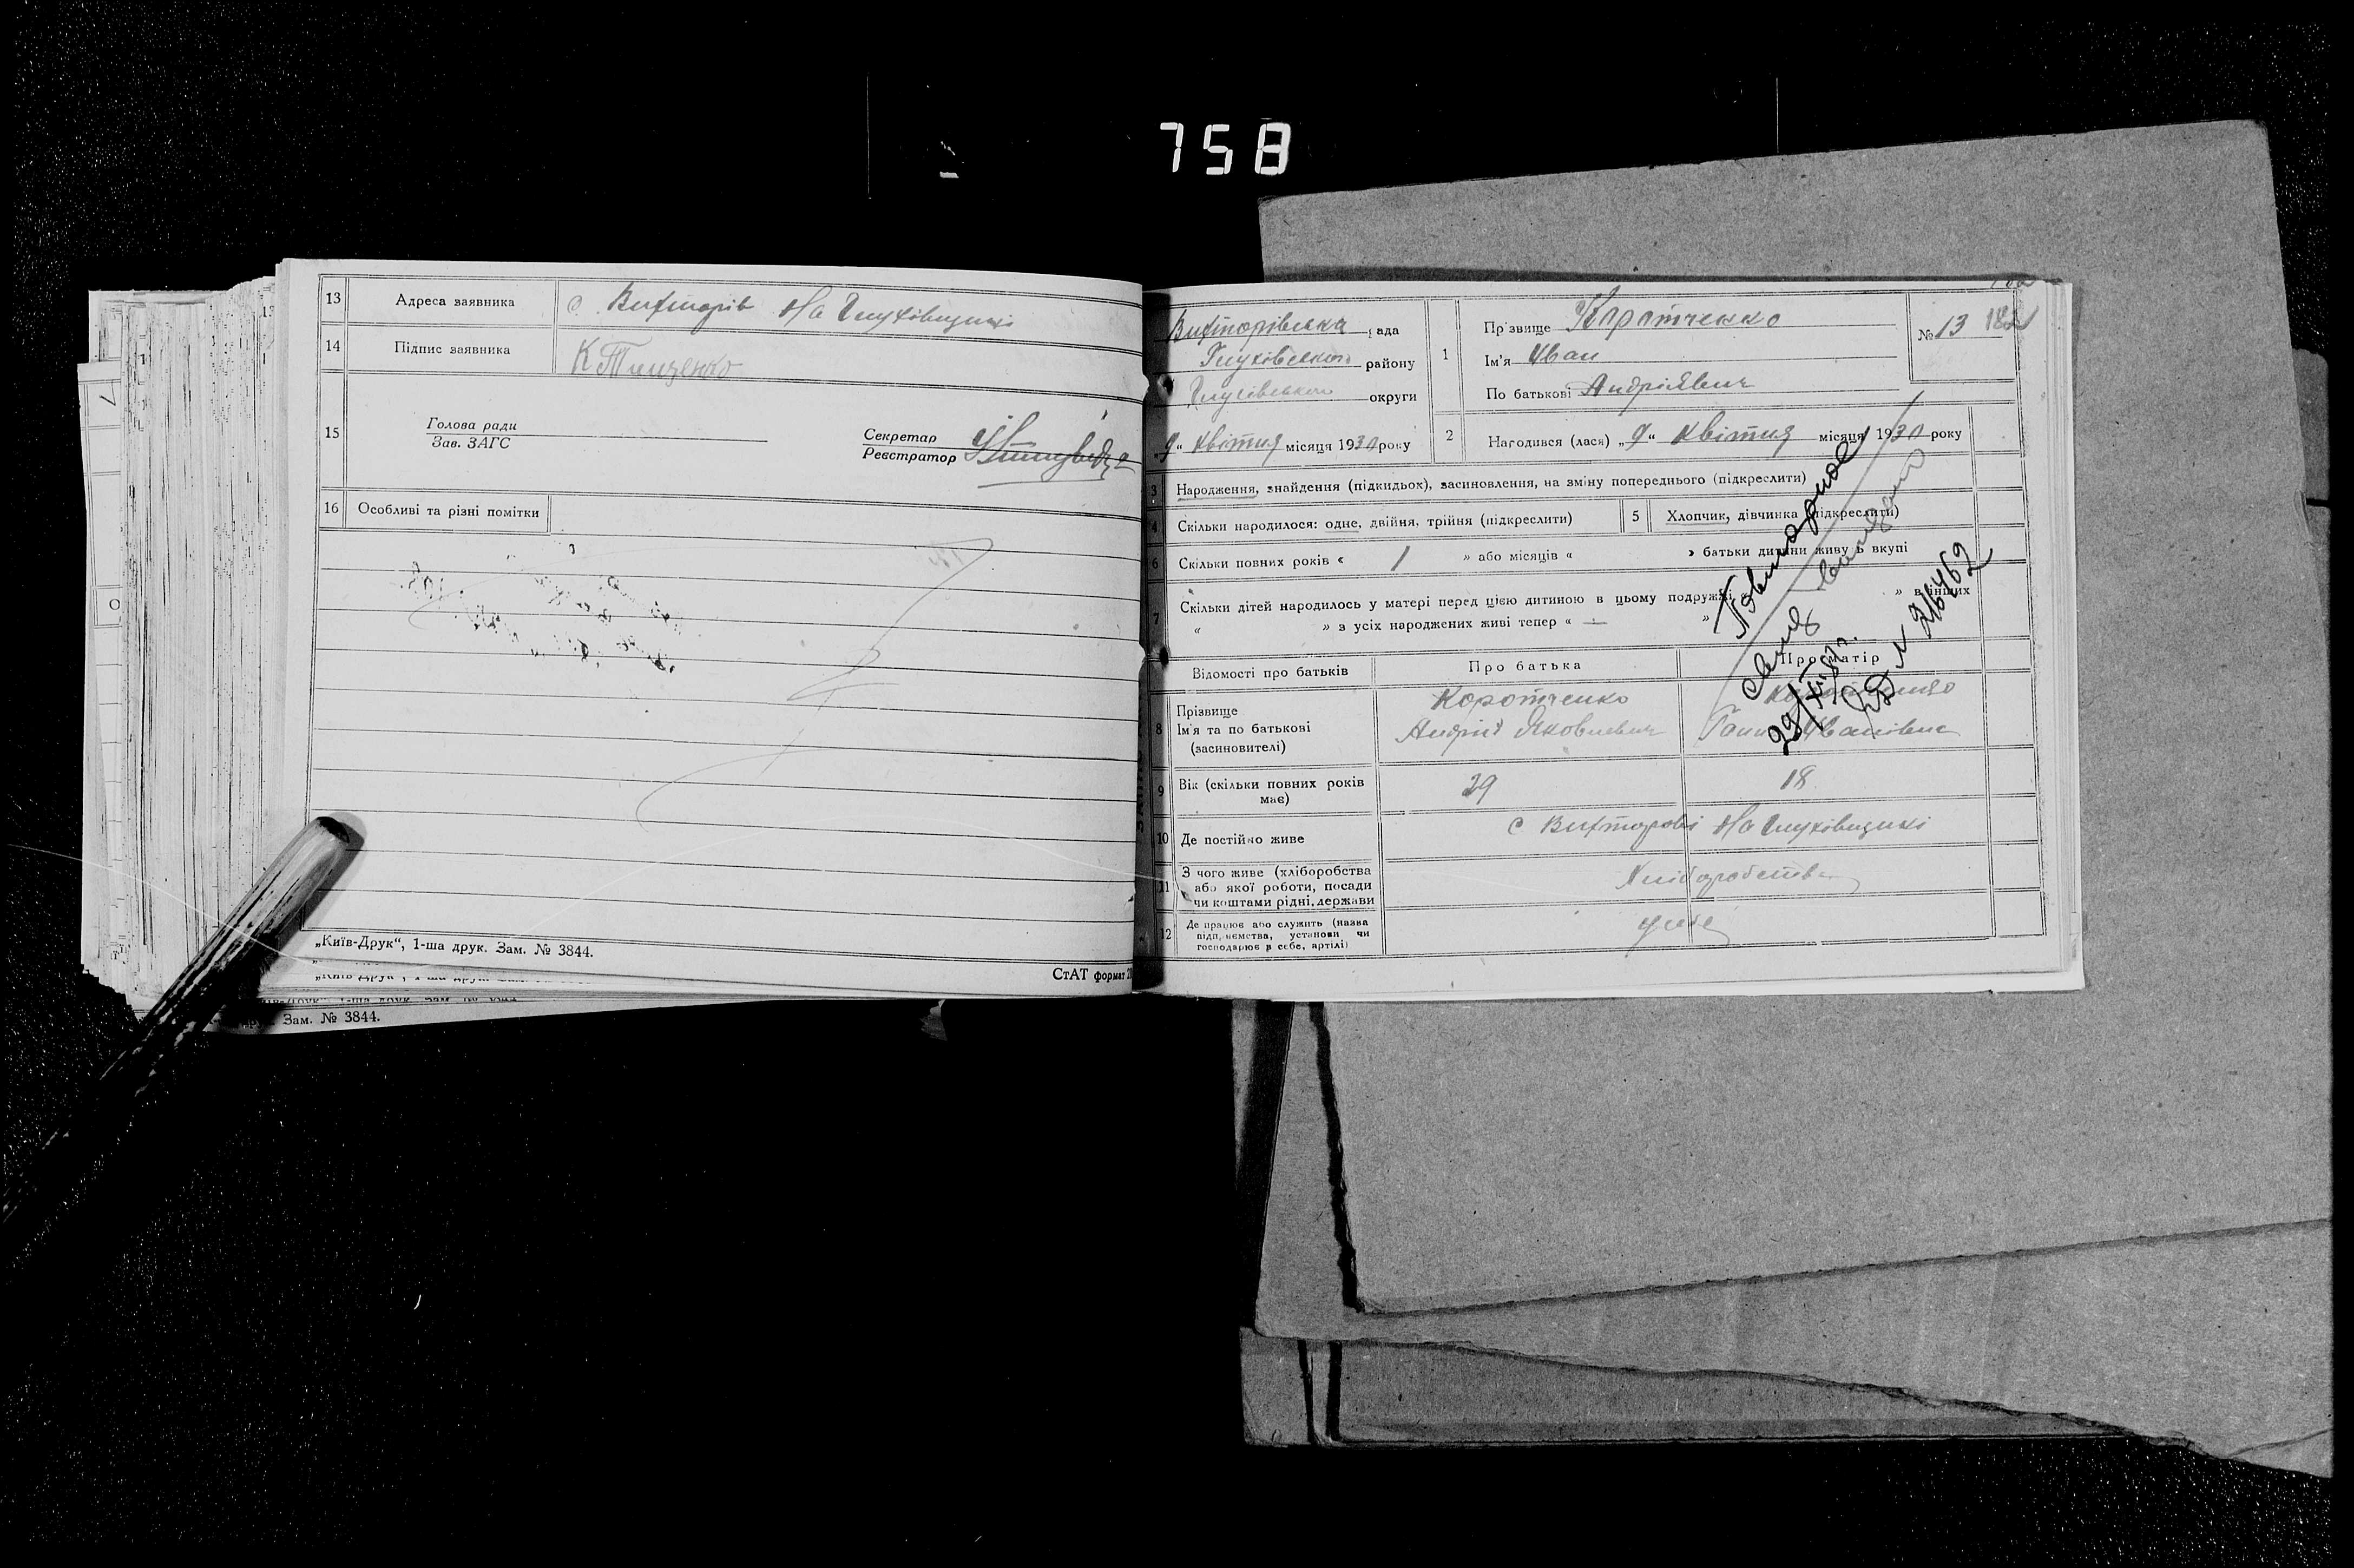 758
13 Адреса заявника с. Вихторів На Глухівщині
14 Підпис заявника К Тищенко
15 Голова ради
Зав. ЗАГС
Секретар
Реєстратор
16 Особливі та різні помітки
„Київ-Друк“, 1-ша друк. Зам. № 3844.
СтАТ формат
Зам. № 3844.
Вихторівська рада
Глухівського району
Глухівської округи
„9“ квітня місяця 1930 року
1 Прізвище Коротченко
Ім'я Иван
По батькові Андріявич
№ 13 182
2 Народився (лася) „9“ квітня місяця 1930 року
3 Народження, знайдення (підкидьох), засиновлення, на зміну попереднього (підкреслити)
4 Скільки народилося: одне, двійня, трійня (підкреслити)
5 Хлопчик, дівчинка (підкреслити)
6 Скільки повних років « 1 » або місяців « » батьки дитини живуть вкупі
7 Скільки дітей народилось у матері перед цією дитиною в цьому подружжі « » в інших
« » з усіх народжених живі тепер « — »
Повторное
29/XI
№ 216462
Відомості про батьків
Про батька
Про матір
8 Прізвище
Ім'я та по батькові
(засиновителі)
Коротченко
Андрій Яковлевич
Ганна Иванівна
9 Вік (скільки повних років має)
29
18
10 Де постійно живе
с Вихторові На Глухівщині
11 З чого живе (хліборобства
або якої роботи, посади
чи коштами рідні, держави
Хліборобства
12 Де працює або служить (назва
підприємства, установи чи
господарює в себе, артілі)
у себе